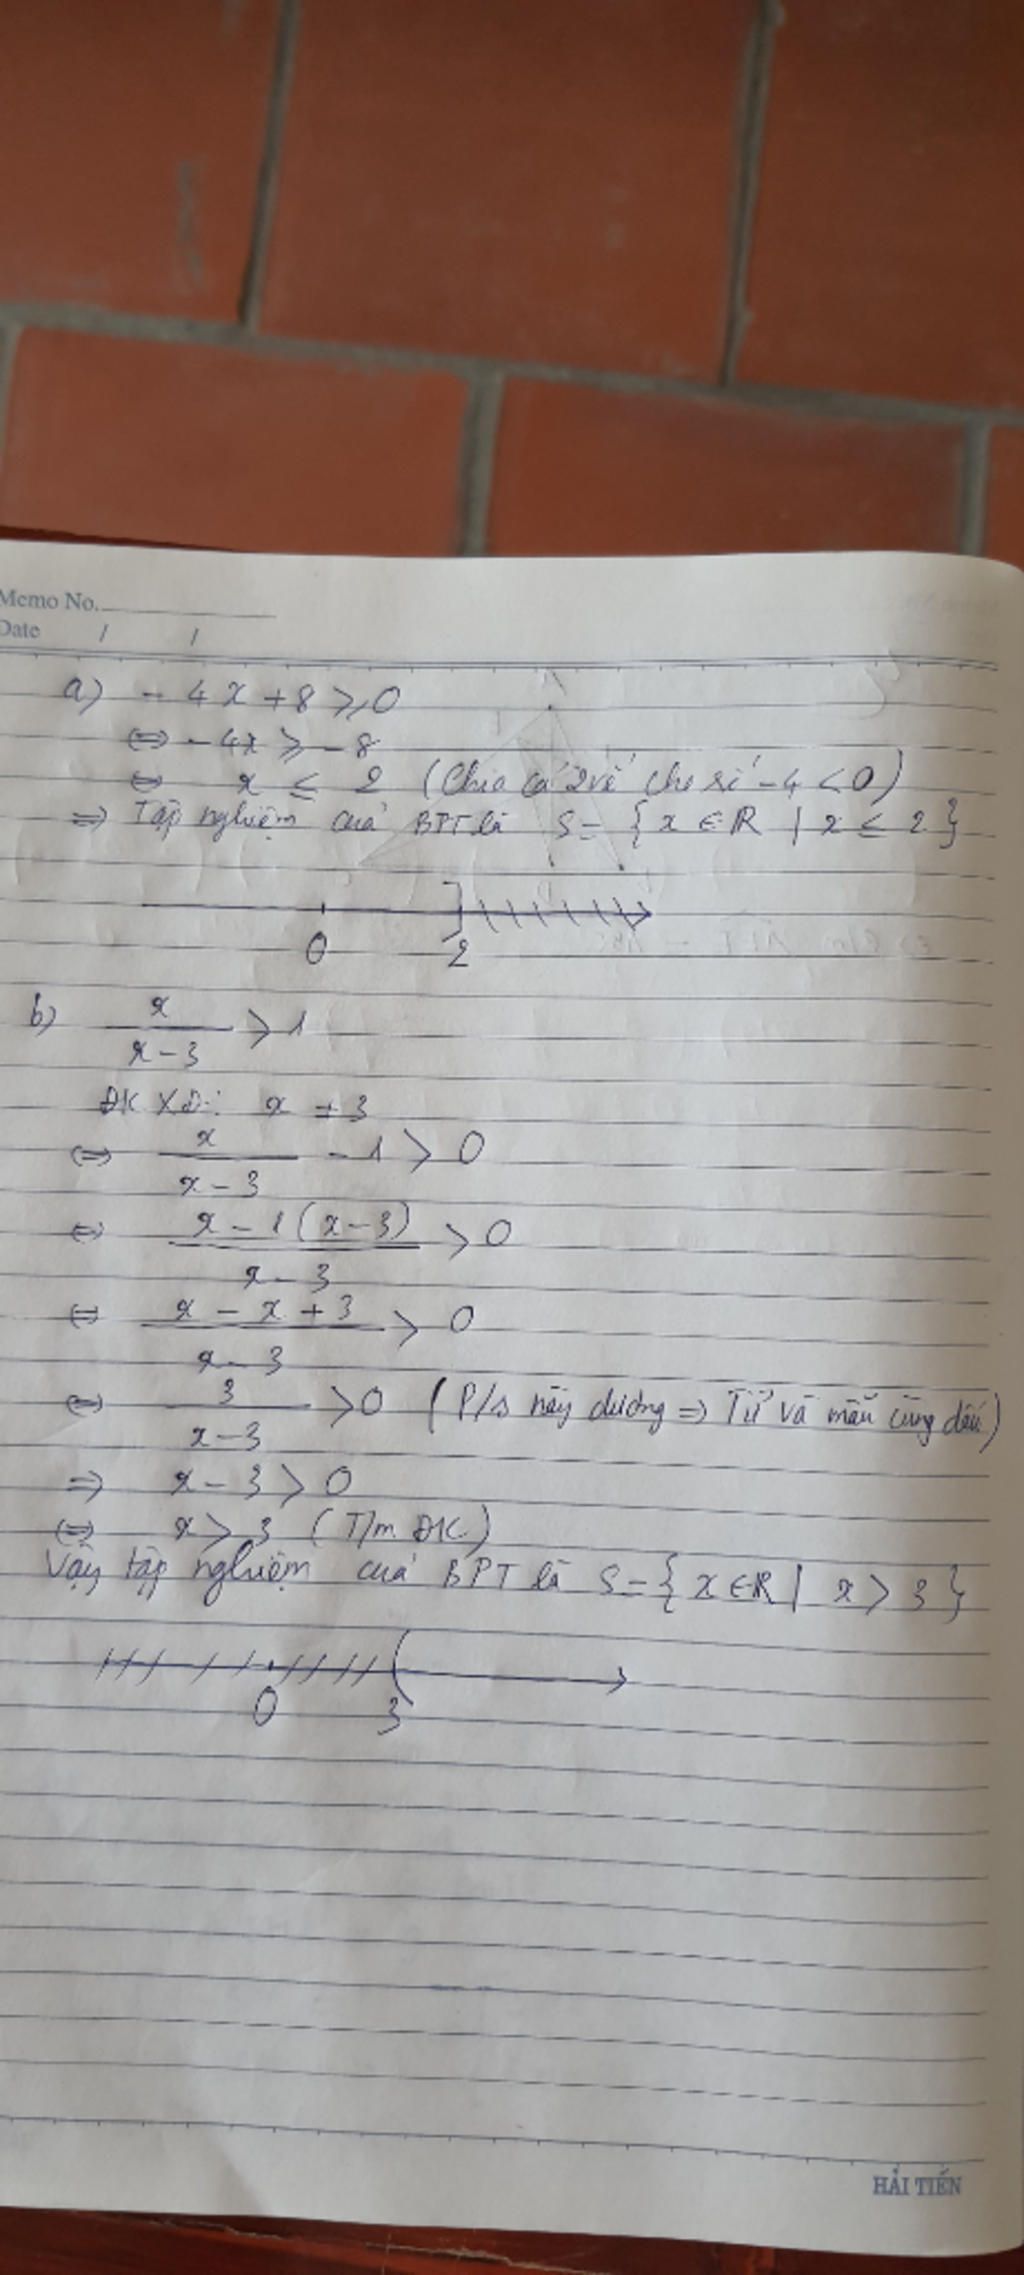 Memo No.
Date / /
a) - 4x + 8 ≥ 0
⇔ - 4x ≥ - 8
⇔ x ≤ 2 (Chia cả 2 vế cho số - 4 < 0)
⇒ Tập nghiệm của BPT là S = { x ∈ R | x ≤ 2 }
0 2
b) x / (x - 3) > 1
ĐKXĐ: x ≠ 3
⇔ x / (x - 3) - 1 > 0
⇔ (x - 1(x - 3)) / (x - 3) > 0
⇔ (x - x + 3) / (x - 3) > 0
⇔ 3 / (x - 3) > 0 (P/s này dương ⇒ Tử và mẫu cùng dấu)
⇒ x - 3 > 0
⇔ x > 3 (T/m ĐK)
Vậy tập nghiệm của BPT là S = { x ∈ R | x > 3 }
0 3
HẢI TIẾN